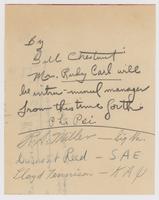 By
Bill Chestnut
Mr. Ruby Carl will
be intra-mural manager
from this time forth.
Chi Psi
Miller — Sig Nu
Dwight Reed — S A E
Lloyd